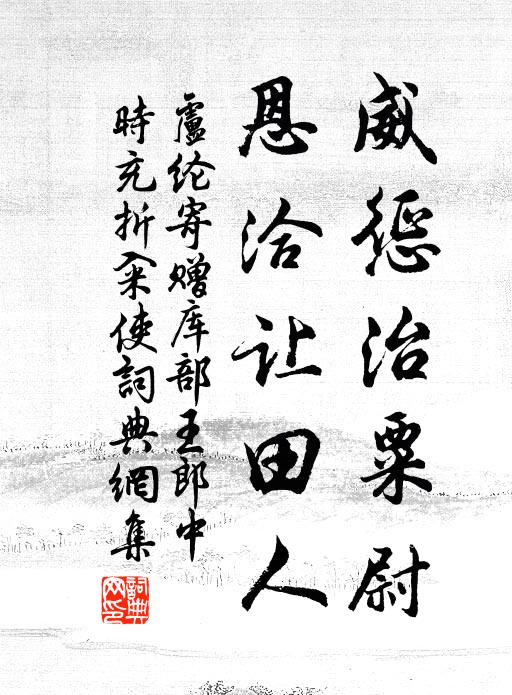 威惩治粟尉
恩洽让田人
卢纶寄赠库部王郎中
時充折籴使詞典網集
詞典网印